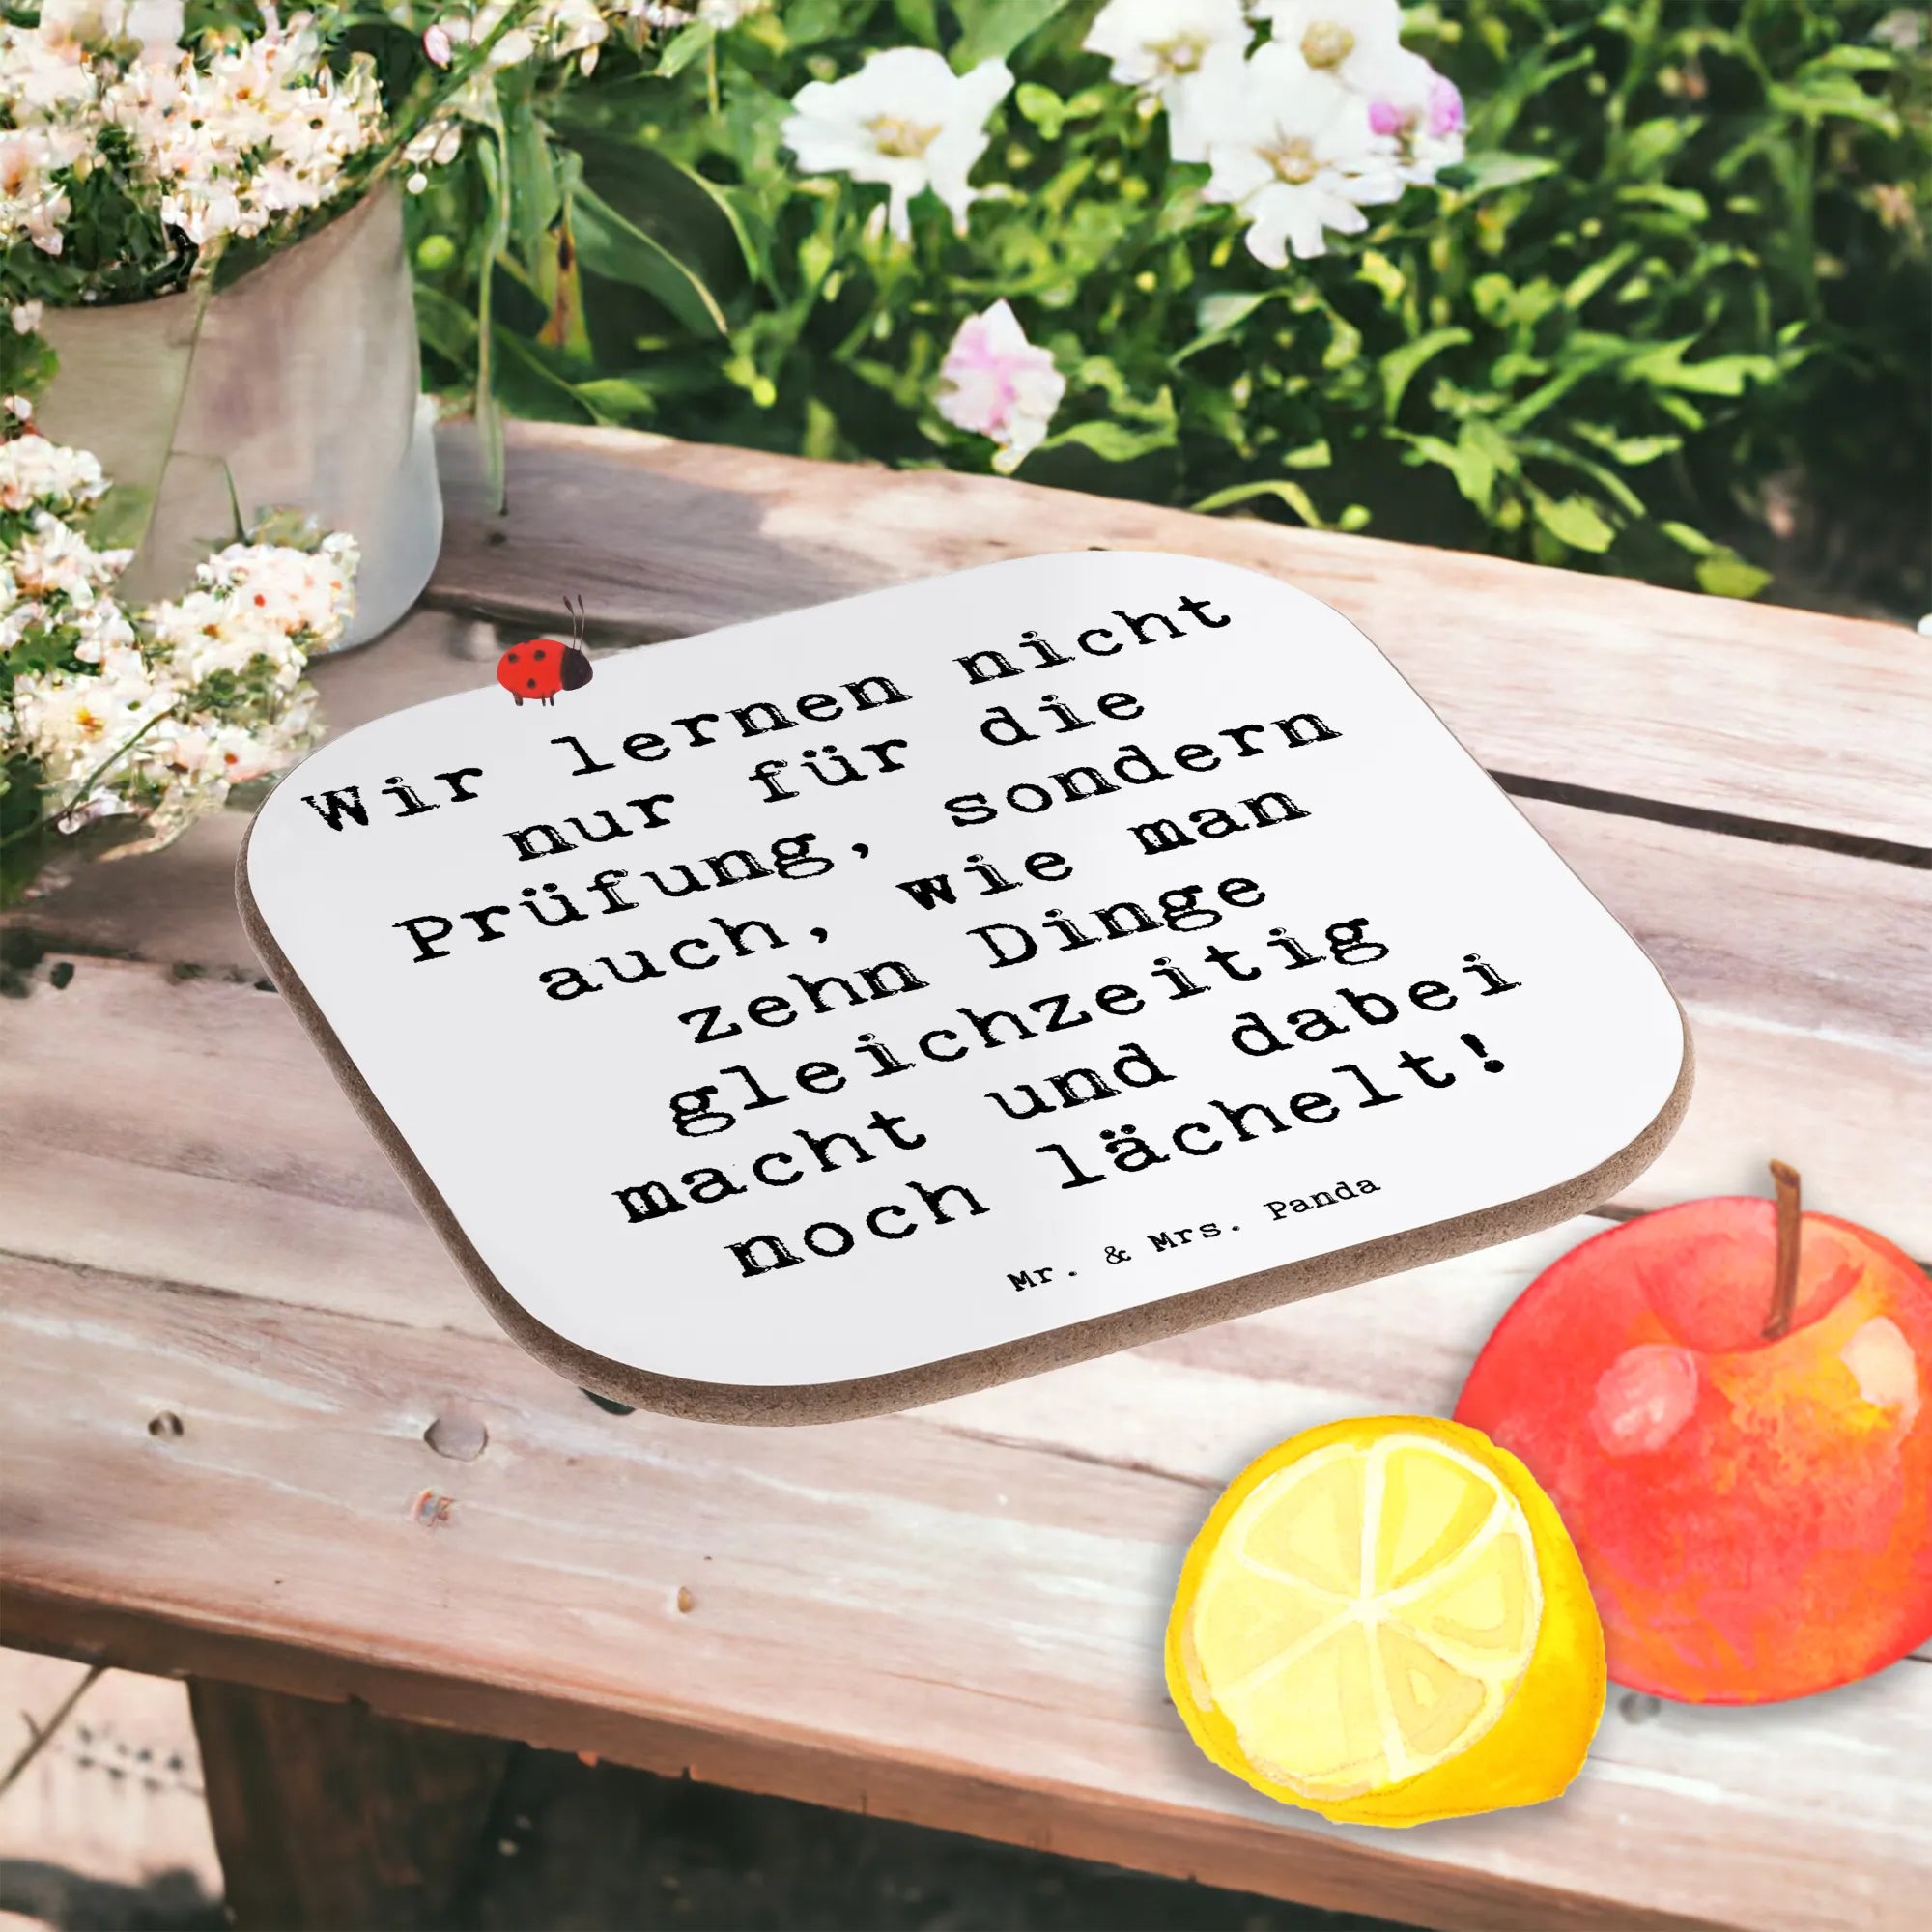 Wir lernen nicht
nur für die
Prüfung, sondern
auch, wie man
zehn Dinge
gleichzeitig
macht und dabei
noch lächelt!
Mr. & Mrs. Panda